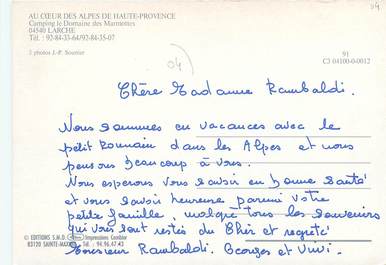 AU CŒUR DES ALPES DE HAUTE-PROVENCE
Camping le Domaine des Marmottes
04540 LARCHE
Tél. : 92-84-33-64/92-84-35-07
3 photos J.-P.
04
04
91
C3 04100-0-0012
Chère Madame Rambaldi.
Nous sommes en vacances avec le
petit Romain dans les Alpes et nous
pensons beaucoup à vous.
Nous esperons vous savoir en bonne santé
et vous savoir heureuse parmi votre
petite famille, malgré tous les souvenirs
qui vous sont restés du Cher et regreté
Monsieur Rambaldi. Georges et Vivi.
© EDITIONS S.M.D. Impressions Combier
83120 SAINTE-MAXIME Tél. 94.96.47.43